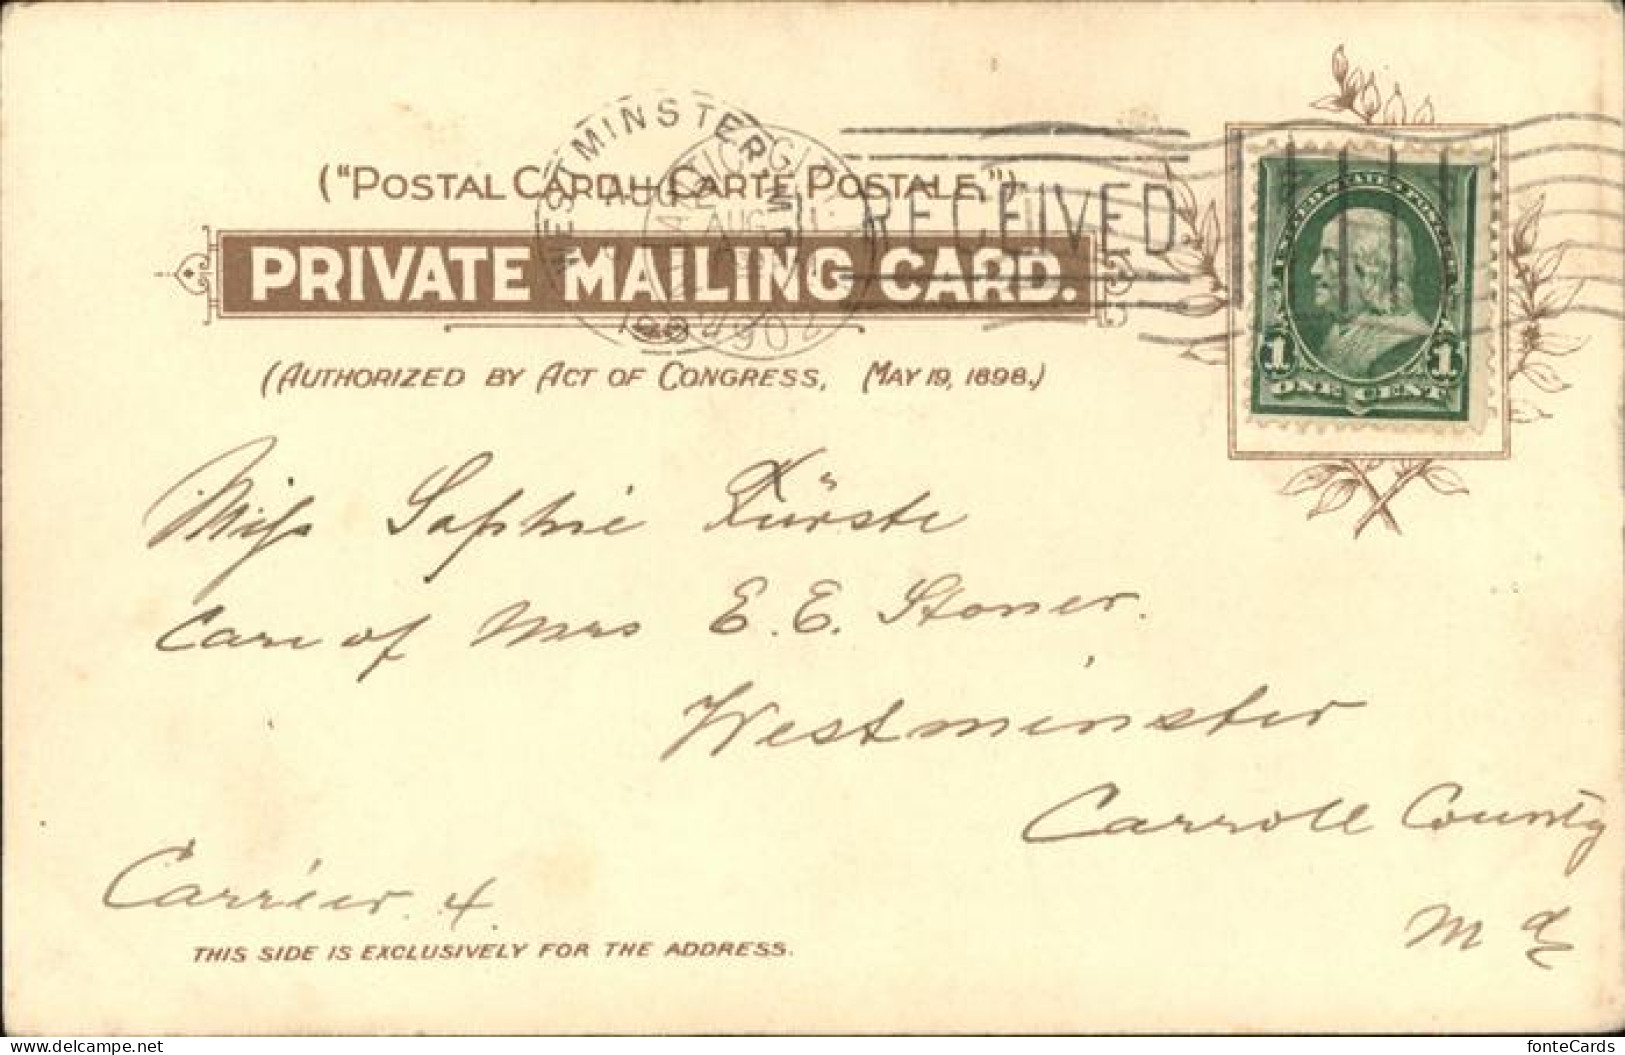 ("POSTAL CARD — CARTE POSTALE.")
PRIVATE MAILING CARD.
(AUTHORIZED BY ACT OF CONGRESS, MAY 19, 1898.)
WESTMINSTER MD.
AUG
RECEIVED
UNITED STATES POSTAGE
1 1
ONE CENT
Miss Sophie Kürste
Care of Mrs E. E. Stoner.
Westminster
Carroll County
Md
Carrier 4.
THIS SIDE IS EXCLUSIVELY FOR THE ADDRESS.
delcampe.net
fonteCards